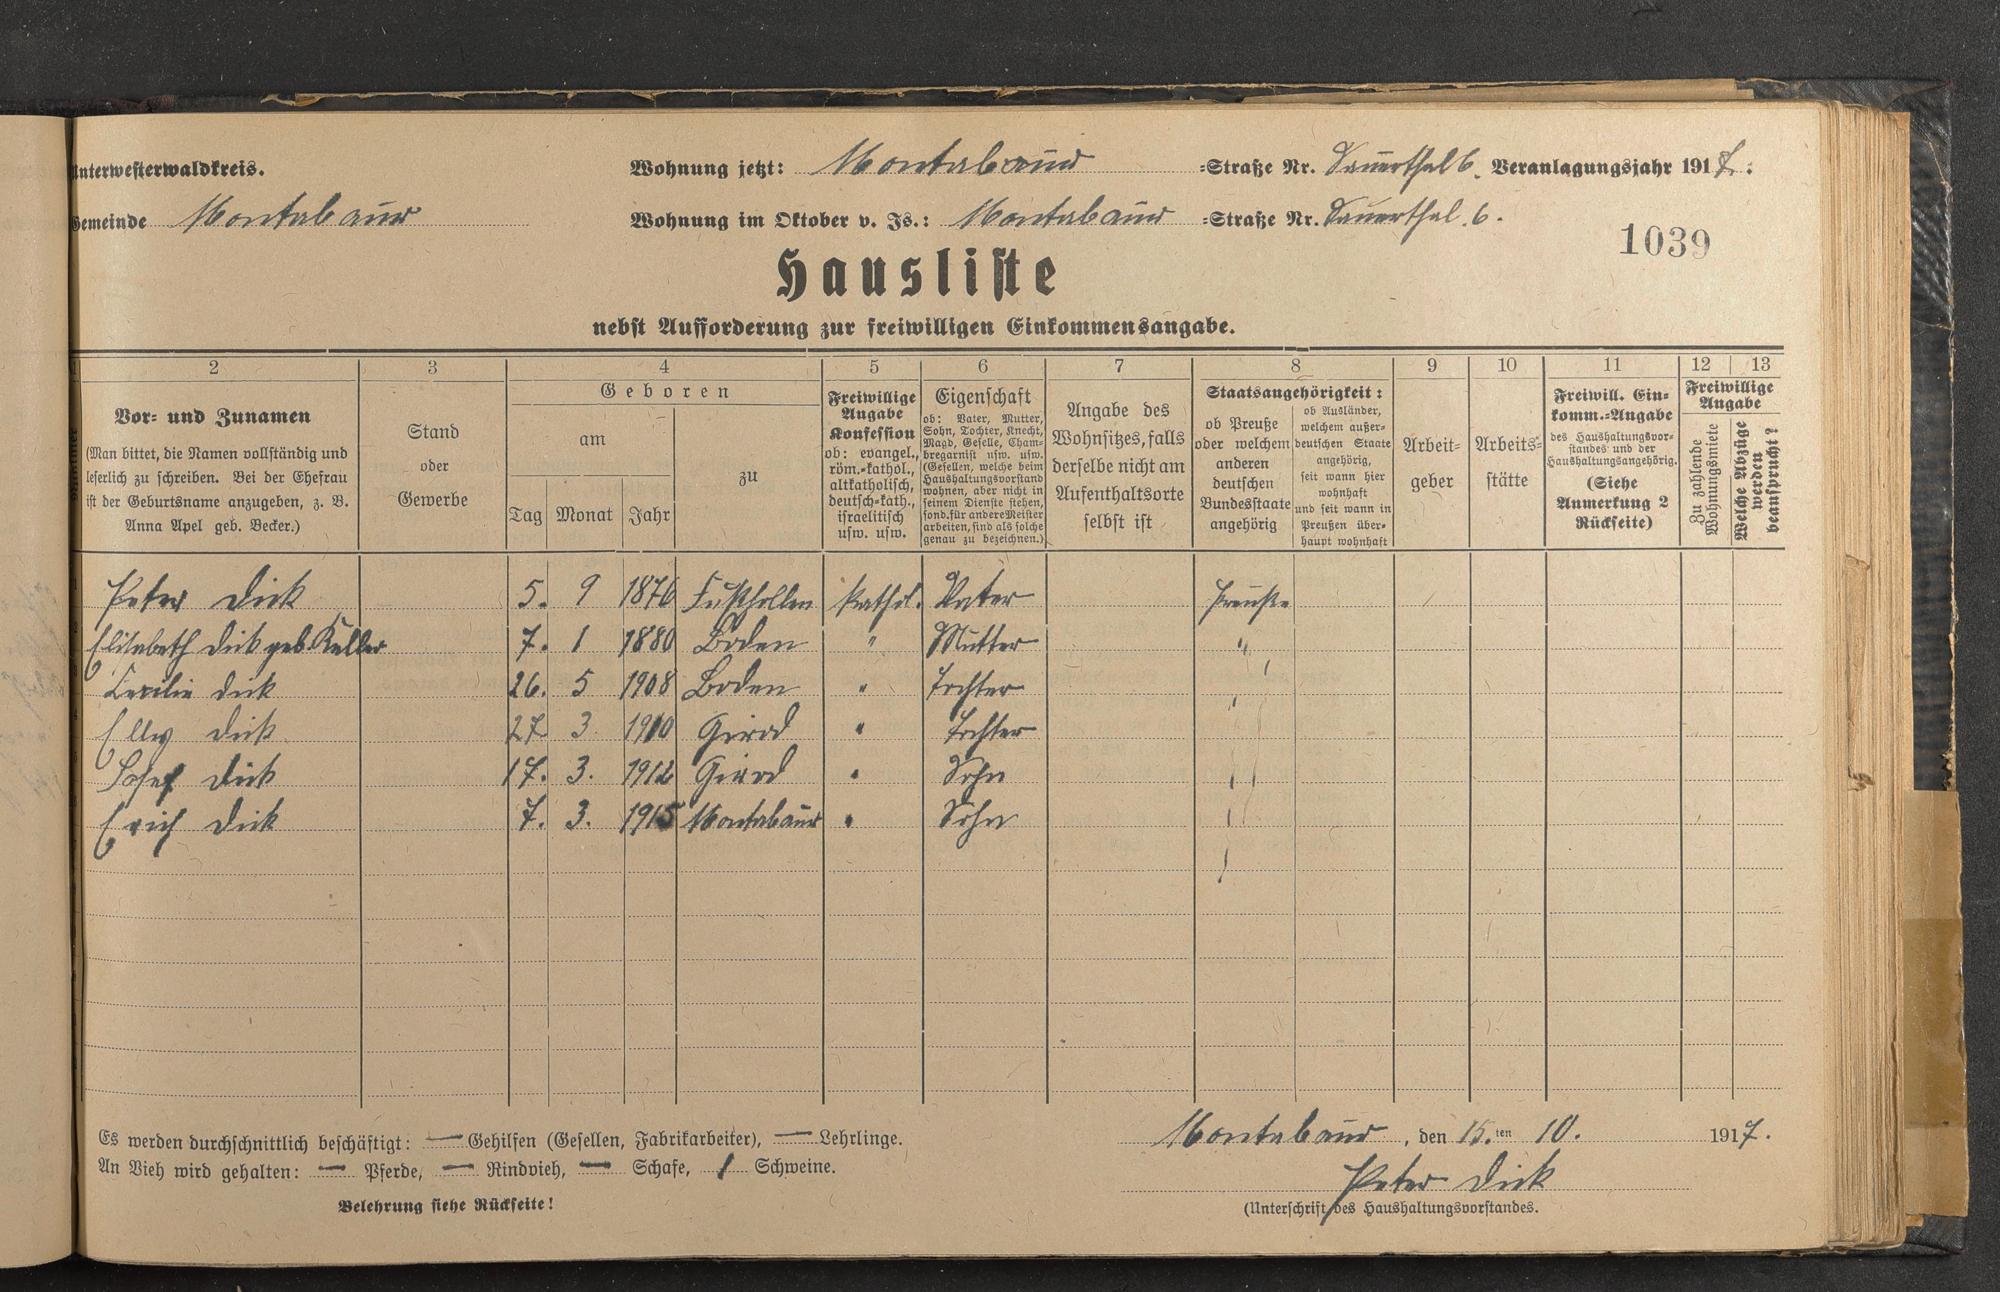 Unterwesterwaldkreis.
Wohnung jetzt: Montabaur =Straße Nr. Sauerthal 6. Veranlagungsjahr 1917.
Gemeinde Montabaur
Wohnung im Oktober v. Js.: Montabaur =Straße Nr. Sauerthal 6.
1039
Hausliste
nebst Aufforderung zur freiwilligen Einkommensangabe.
1 2 3 4 5 6 7 8 9 10 11 12 13
Vor- und Zunamen
(Man bittet, die Namen vollständig und
leserlich zu schreiben. Bei der Ehefrau
ist der Geburtsname anzugeben, z. B.
Anna Apel geb. Becker.)
Stand
oder
Gewerbe
Geboren
am
Tag Monat Jahr
zu
Freiwillige
Angabe
Konfession
ob: evangel.,
röm.-kathol.,
altkatholisch,
deutsch-kath.,
israelitisch
usw. usw.
Eigenschaft
ob: Vater, Mutter,
Sohn, Tochter, Knecht,
Magd, Geselle, Cham-
bregarnist usw. usw.
(Gesellen, welche beim
Haushaltungsvorstand
wohnen, aber nicht in
seinem Dienste stehen,
sond. für andere Meister
arbeiten, sind als solche
genau zu bezeichnen.)
Angabe des
Wohnsitzes, falls
derselbe nicht am
Aufenthaltsorte
selbst ist
Staatsangehörigkeit:
ob Preuße
oder welchem
anderen
deutschen
Bundesstaate
angehörig
ob Ausländer,
welchem außer-
deutschen Staate
angehörig,
seit wann hier
wohnhaft
und seit wann in
Preußen über-
haupt wohnhaft
Arbeit-
geber
Arbeits-
stätte
Freiwill. Ein-
komm.-Angabe
des Haushaltungsvor-
standes und der
Haushaltungsangehörig.
(Siehe
Anmerkung 2
Rückseite)
Freiwillige
Angabe
Zu zahlende
Wohnungsmiete
Welche Abzüge
werden
beansprucht?
Peter Dick 5. 9 1876 kathol. Vater Preuße
Elisabeth Dick geb. Keller 7. 1 1880 Boden " Mutter "
Cecilie Dick 26. 5 1908 Boden " Tochter "
Elly Dick 27 3 1910 Girod " Tochter
Josef Dick 17. 3. 1912 Girod " Sohn "
Erich Dick 7. 3. 1915 Montabaur " Sohn
Es werden durchschnittlich beschäftigt: — Gehilfen (Gesellen, Fabrikarbeiter), — Lehrlinge.
An Vieh wird gehalten: — Pferde, — Rindvieh, — Schafe, 1 Schweine.
Belehrung siehe Rückseite!
Montabaur, den 15.ten 10. 1917.
Peter Dick
(Unterschrift des Haushaltungsvorstandes.